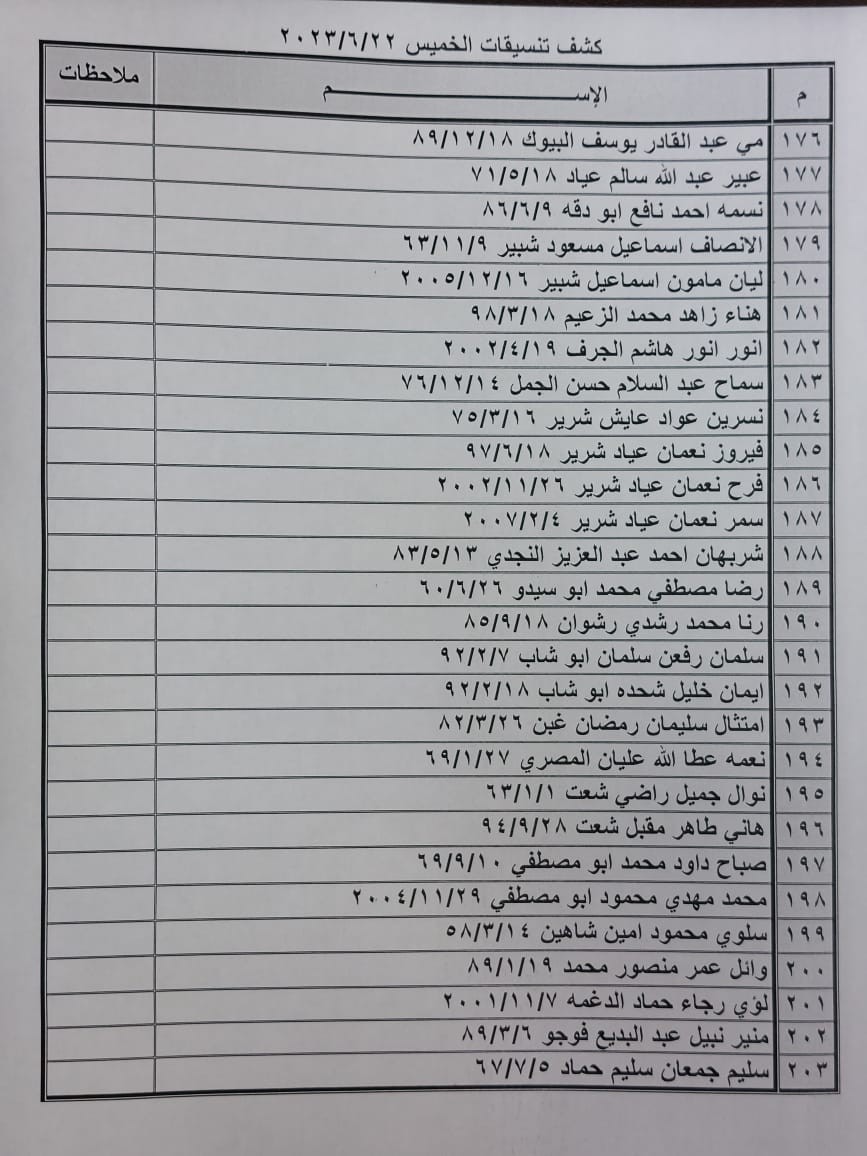 كشف تنسيقات الخميس ٢٠٢٣/٦/٢٢
م الإســـــم ملاحظات
١٧٦ مي عبد القادر يوسف البيوك ٨٩/١٢/١٨
١٧٧ عبير عبد الله سالم عياد ٧١/٥/١٨
١٧٨ نسمه احمد نافع ابو دقه ٨٦/٦/٩
١٧٩ الانصاف اسماعيل مسعود شبير ٦٣/١١/٩
١٨٠ ليان مامون اسماعيل شبير ٢٠٠٥/١٢/١٦
١٨١ هناء زاهد محمد الزعيم ٩٨/٣/١٨
١٨٢ انور انور هاشم الجرف ٢٠٠٢/٤/١٩
١٨٣ سماح عبد السلام حسن الجمل ٧٦/١٢/١٤
١٨٤ نسرين عواد عايش شرير ٧٥/٣/١٦
١٨٥ فيروز نعمان عياد شرير ٩٧/٦/١٨
١٨٦ فرح نعمان عياد شرير ٢٠٠٢/١١/٢٦
١٨٧ سمر نعمان عياد شرير ٢٠٠٧/٢/٤
١٨٨ شريهان احمد عبد العزيز النجدي ٨٣/٥/١٣
١٨٩ رضا مصطفي محمد ابو سيدو ٦٠/٦/٢٦
١٩٠ رنا محمد رشدي رشوان ٨٥/٩/١٨
١٩١ سلمان رفعن سلمان ابو شاب ٩٢/٢/٧
١٩٢ ايمان خليل شحده ابو شاب ٩٢/٢/١٨
١٩٣ امتثال سليمان رمضان غبن ٨٢/٣/٢٦
١٩٤ نعمه عطا الله عليان المصري ٦٩/١/٢٧
١٩٥ نوال جميل راضي شعت ٦٣/١/١
١٩٦ هاني طاهر مقبل شعت ٩٤/٩/٢٨
١٩٧ صباح داود محمد ابو مصطفي ٦٩/٩/١٠
١٩٨ محمد مهدي محمود ابو مصطفي ٢٠٠٤/١١/٢٩
١٩٩ سلوي محمود امين شاهين ٥٨/٣/١٤
٢٠٠ وائل عمر منصور محمد ٨٩/١/١٩
٢٠١ لؤي رجاء حماد الدغمه ٢٠٠١/١١/٧
٢٠٢ منير نبيل عبد البديع فوجو ٨٩/٣/٦
٢٠٣ سليم جمعان سليم حماد ٦٧/٧/٥